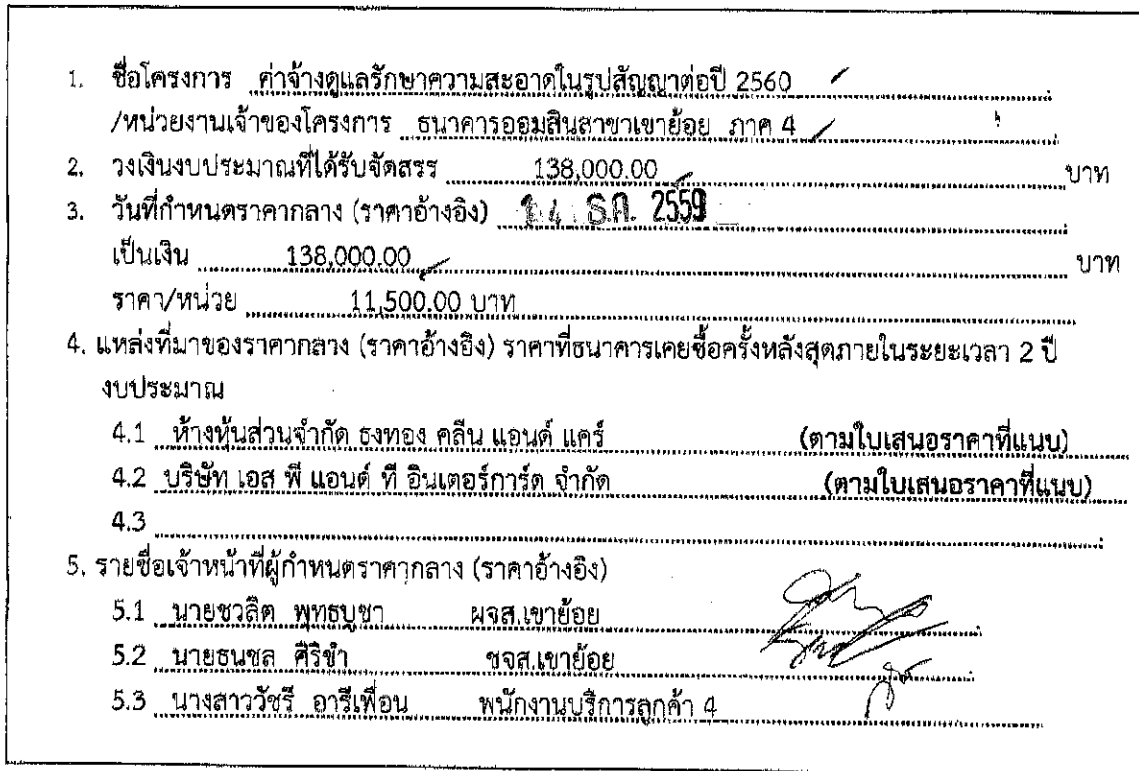 1. ชื่อโครงการ ค่าจ้างดูแลรักษาความสะอาดในรูปสัญญาต่อปี 2560
/หน่วยงานเจ้าของโครงการ ธนาคารออมสินสาขาเขาย้อย ภาค 4
2. วงเงินงบประมาณที่ได้รับจัดสรร 138,000.00 บาท
3. วันที่กำหนดราคากลาง (ราคาอ้างอิง) ธ.ค. 2559
เป็นเงิน 138,000.00 บาท
ราคา/หน่วย 11,500.00 บาท
4. แหล่งที่มาของราคากลาง (ราคาอ้างอิง) ราคาที่ธนาคารเคยซื้อครั้งหลังสุดภายในระยะเวลา 2 ปี
งบประมาณ
4.1 ห้างหุ้นส่วนจำกัด ธงทอง คลีน แอนด์ แคร์ (ตามใบเสนอราคาที่แนบ)
4.2 บริษัท เอส พี แอนด์ ที อินเตอร์การ์ด จำกัด (ตามใบเสนอราคาที่แนบ)
4.3
5. รายชื่อเจ้าหน้าที่ผู้กำหนดราคากลาง (ราคาอ้างอิง)
5.1 นายชวลิต พุทธบูชา ผจส.เขาย้อย
5.2 นายธนชล ศิริขำ ชจส.เขาย้อย
5.3 นางสาววัชรี อารีเพื่อน พนักงานบริการลูกค้า 4